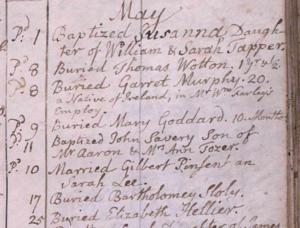 May
Pd. 1 Baptized Susanna, Daugh-
ter of William & Sarah Tapper.
Pd. 8 Buried Thomas Wotton. 1 yr & ½
Pd. 8 Buried Garret Murphy. 20.
a Native of Ireland, in Mr Wm
Employ.
Pd. 9 Buried Mary Goddard. 10. Months
Pd. 11 Baptized John Savery Son of
Mr Aaron & Mrs Ann Tozer.
Pd. 10 Married Gilbert Pinsent an
Sarah Lee.
17 Buried Bartholomey
25 Buried Elizabeth Hellier.
of James